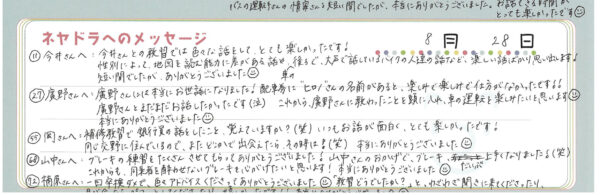 バスの運転手さんの情家さんも短い間でしたが、本当にありがとうございました。お話できる時間が
とっても楽しかったです☺
ネヤドラへのメッセージ
8月 28日
⑪今井さんへ：今井さんとの教習では色々な話をして、とても楽しかったです！
性別によって、地図を読む能力に差がある話や後ろで、大声で話しているバイクの人達の話など、楽しい話ばかり思い出します！
短い間でしたが、ありがとうございました☺
㉗廣野さんへ：廣野さんには本当にお世話になりました！配車券に"ヒロノ"さんの名前があると、楽しみで楽しみで仕方がなかったです！！
廣野さんとまだまだお話したかったです（泣） これから、廣野さんに教わったことを頭に入れ、車の運転を楽しみたいと思います☺
本当にありがとうございました☺
岡さんへ：補修教習で銀行員の話をしたこと、覚えていますか？（笑）いつもお話が面白く、とても楽しかったです！
同じ交野に住んでいるので、またどこかで出会えたら、その時は！（笑） 本当にありがとうございました☺
山中さんへ：ブレーキの練習をたくさんさせてもらってありがとうございました！山中さんのおかげで、ブレーキ、だいぶ上手くなりました！（笑）
これからも、同乗者を酔わせないブレーキを心がけたいと思います！本当にありがとうございました☺
楠原さんへ：一回卒検などで、色々アドバイスくださってありがとうございました☺「教習どうでしたか？」と、わざわざ聞きに来てくださったり、